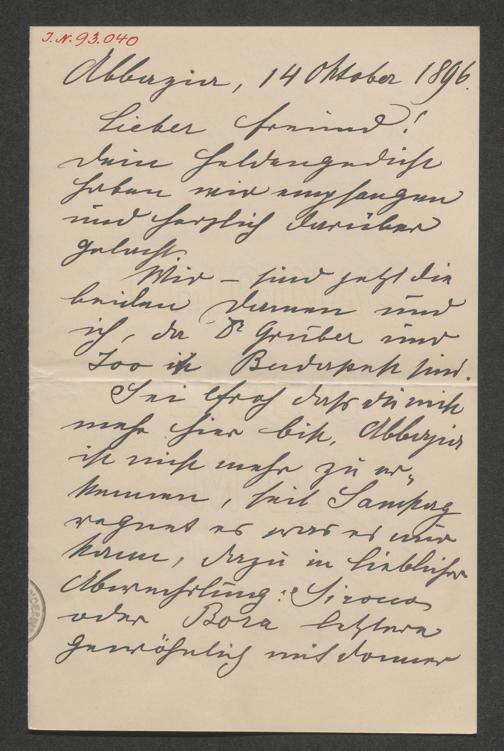 J.N. 93.040
Abbazia, 14 Oktober 1896.
Lieber Freund!
Dein Heldengedicht
haben wir empfangen
und herzlich darüber
gelacht.
Wir – sind jetzt die
beiden Damen und
ich, da Dr Gruber und
in Budapest sind.
Sei froh daß du nicht
mehr hier bist. Abbazia
ist nicht mehr zu er„
kennen, seit Samstag
regnet es was es nur
kann, dazu in lieblicher
Abwechslung: Siroco
oder Bora letztere
gewöhnlich mit Donner